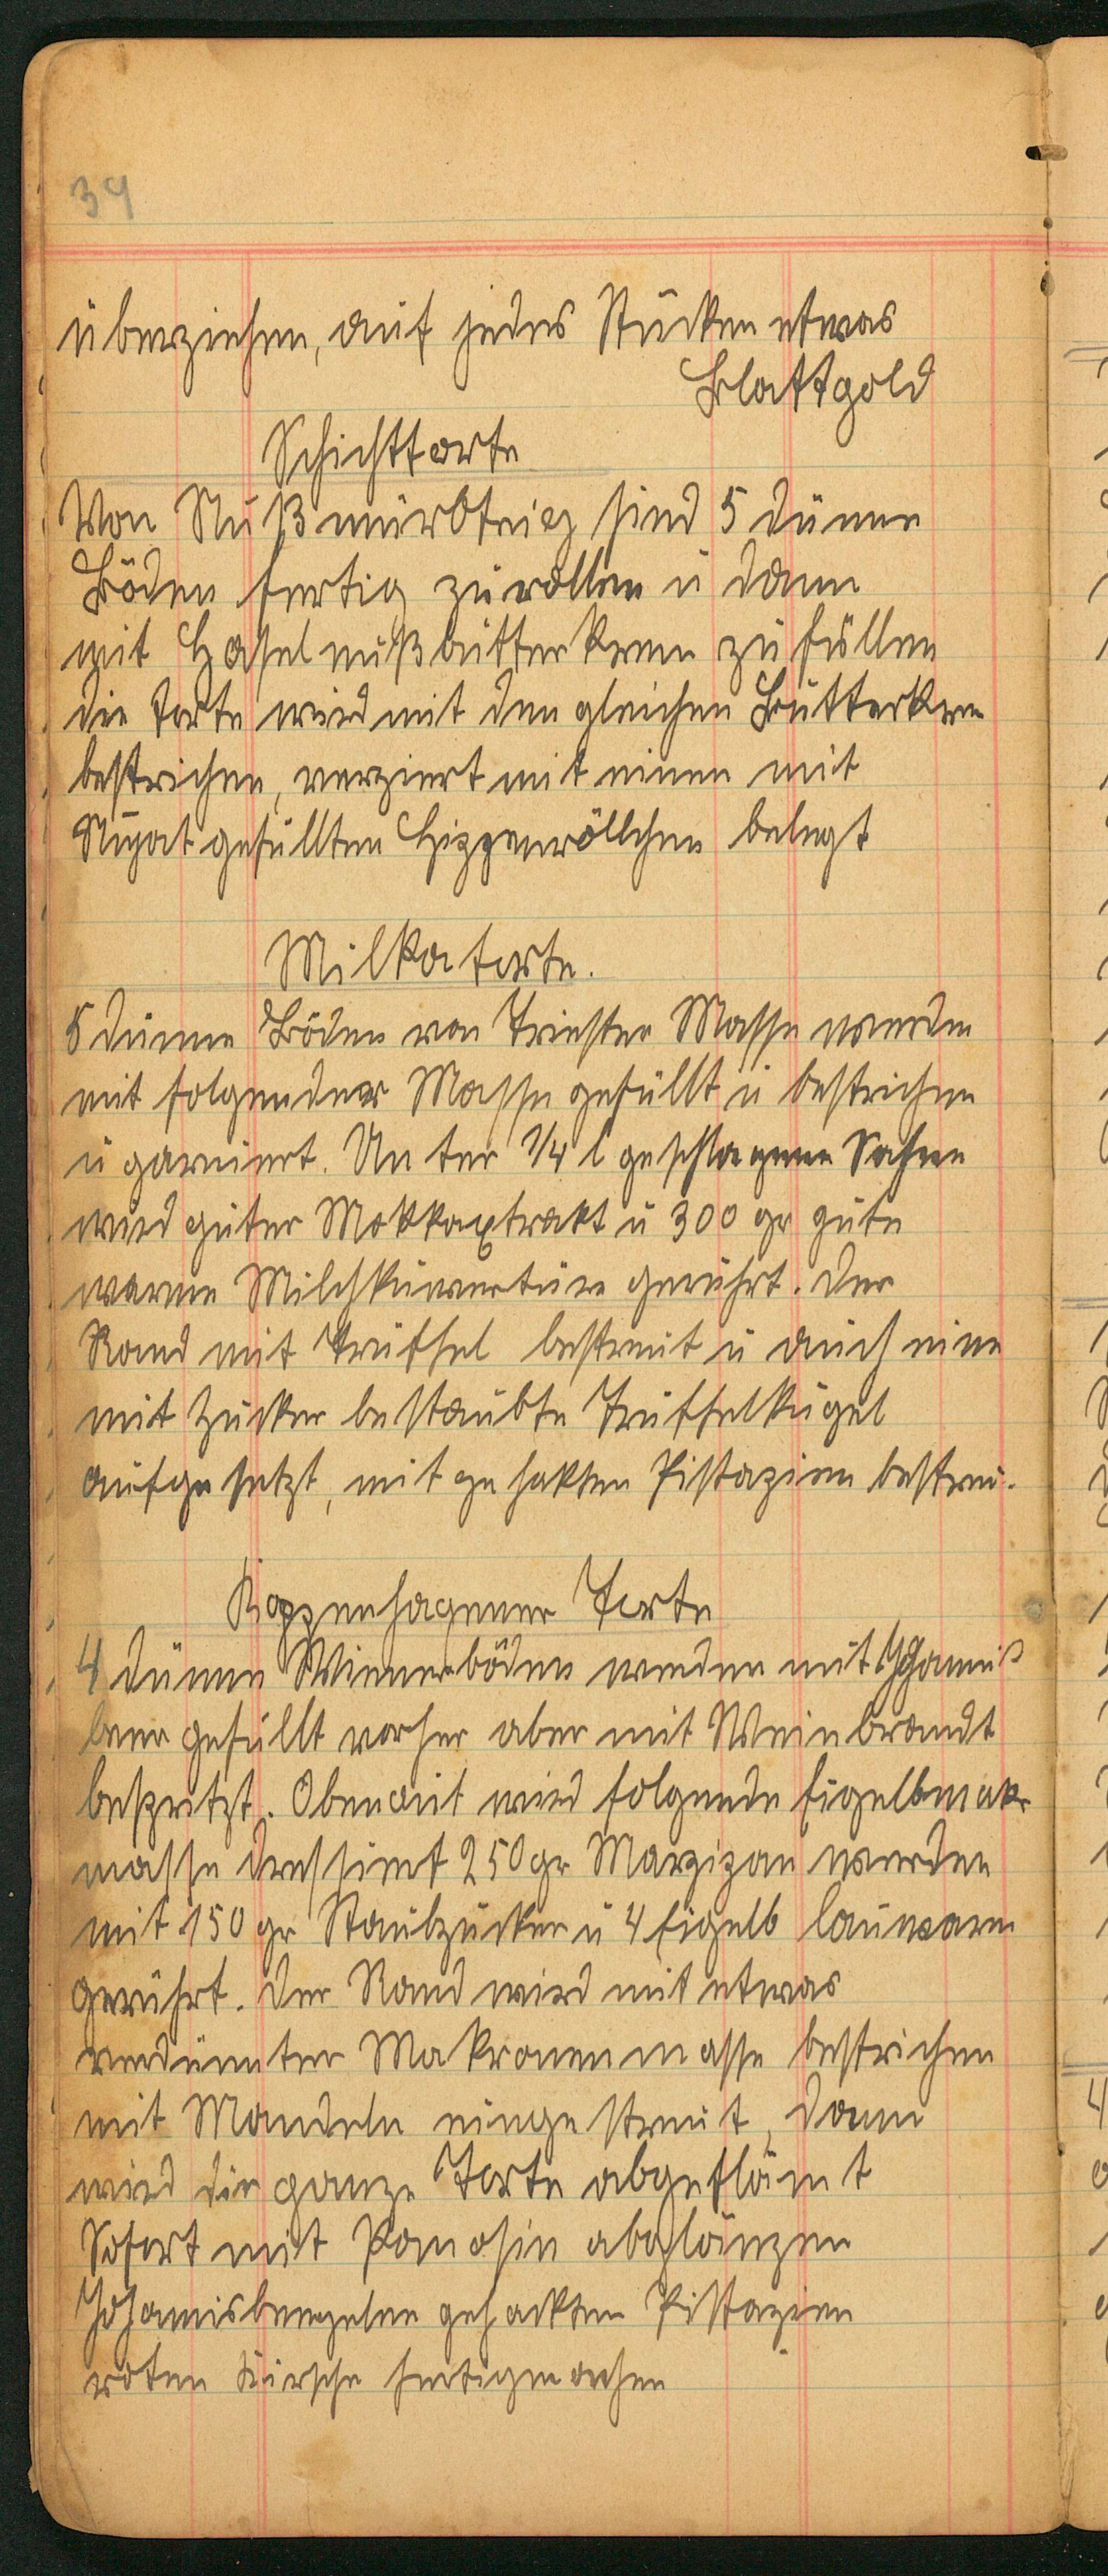 34
überziehen, auf jedes Stücken etwas
Blattgold
Schichttorte
Von Nußmürbteig sind 5 dünne
Böden fertig zu rollen u dann
mit Haselnußbutterkrem zu füllen
die Torte wird mit den gleichen Butterkrem
bestrichen, verziert mit einen mit
Nugat gefüllten Hippenröllchen belegt
Milkatorte.
5 dünne Böden von Triester Masse werden
mit folgender Masse gefüllt u bestrichen
u garniert. Unter 1/4 l geschlagene Sahne
wird guter Mokkaextrakt u 300 gr gute
warme Milchkuvertüre gerührt. Der
Rand mit Trüffel bestreut u auch eine
mit Zucker bestaubte Trüffelkugel
aufgesetzt, mit gehakten Pistazien bestreu.
Koppenhagener Torte
4 dünne Wienerböden werden mit Johannis
beer gefüllt vorher aber mit Weinbrandt
bespritzt. Obenauf wird folgende Eigelbmakr
masse dressiert 250 gr Marzipan werden
mit 150 gr Staubzucker u 4 Eigelb lauwarm
gerührt. Der Rand wird mit etwas
verdünnter Makronenmasse bestrichen
mit Mandeln eingestreut, dann
wird die ganze Torte abgeflämt
Sofort mit Pomosin abglänzen
Johannisbeergelee gehackten Pistazien
roten Kirsche fertigmachen